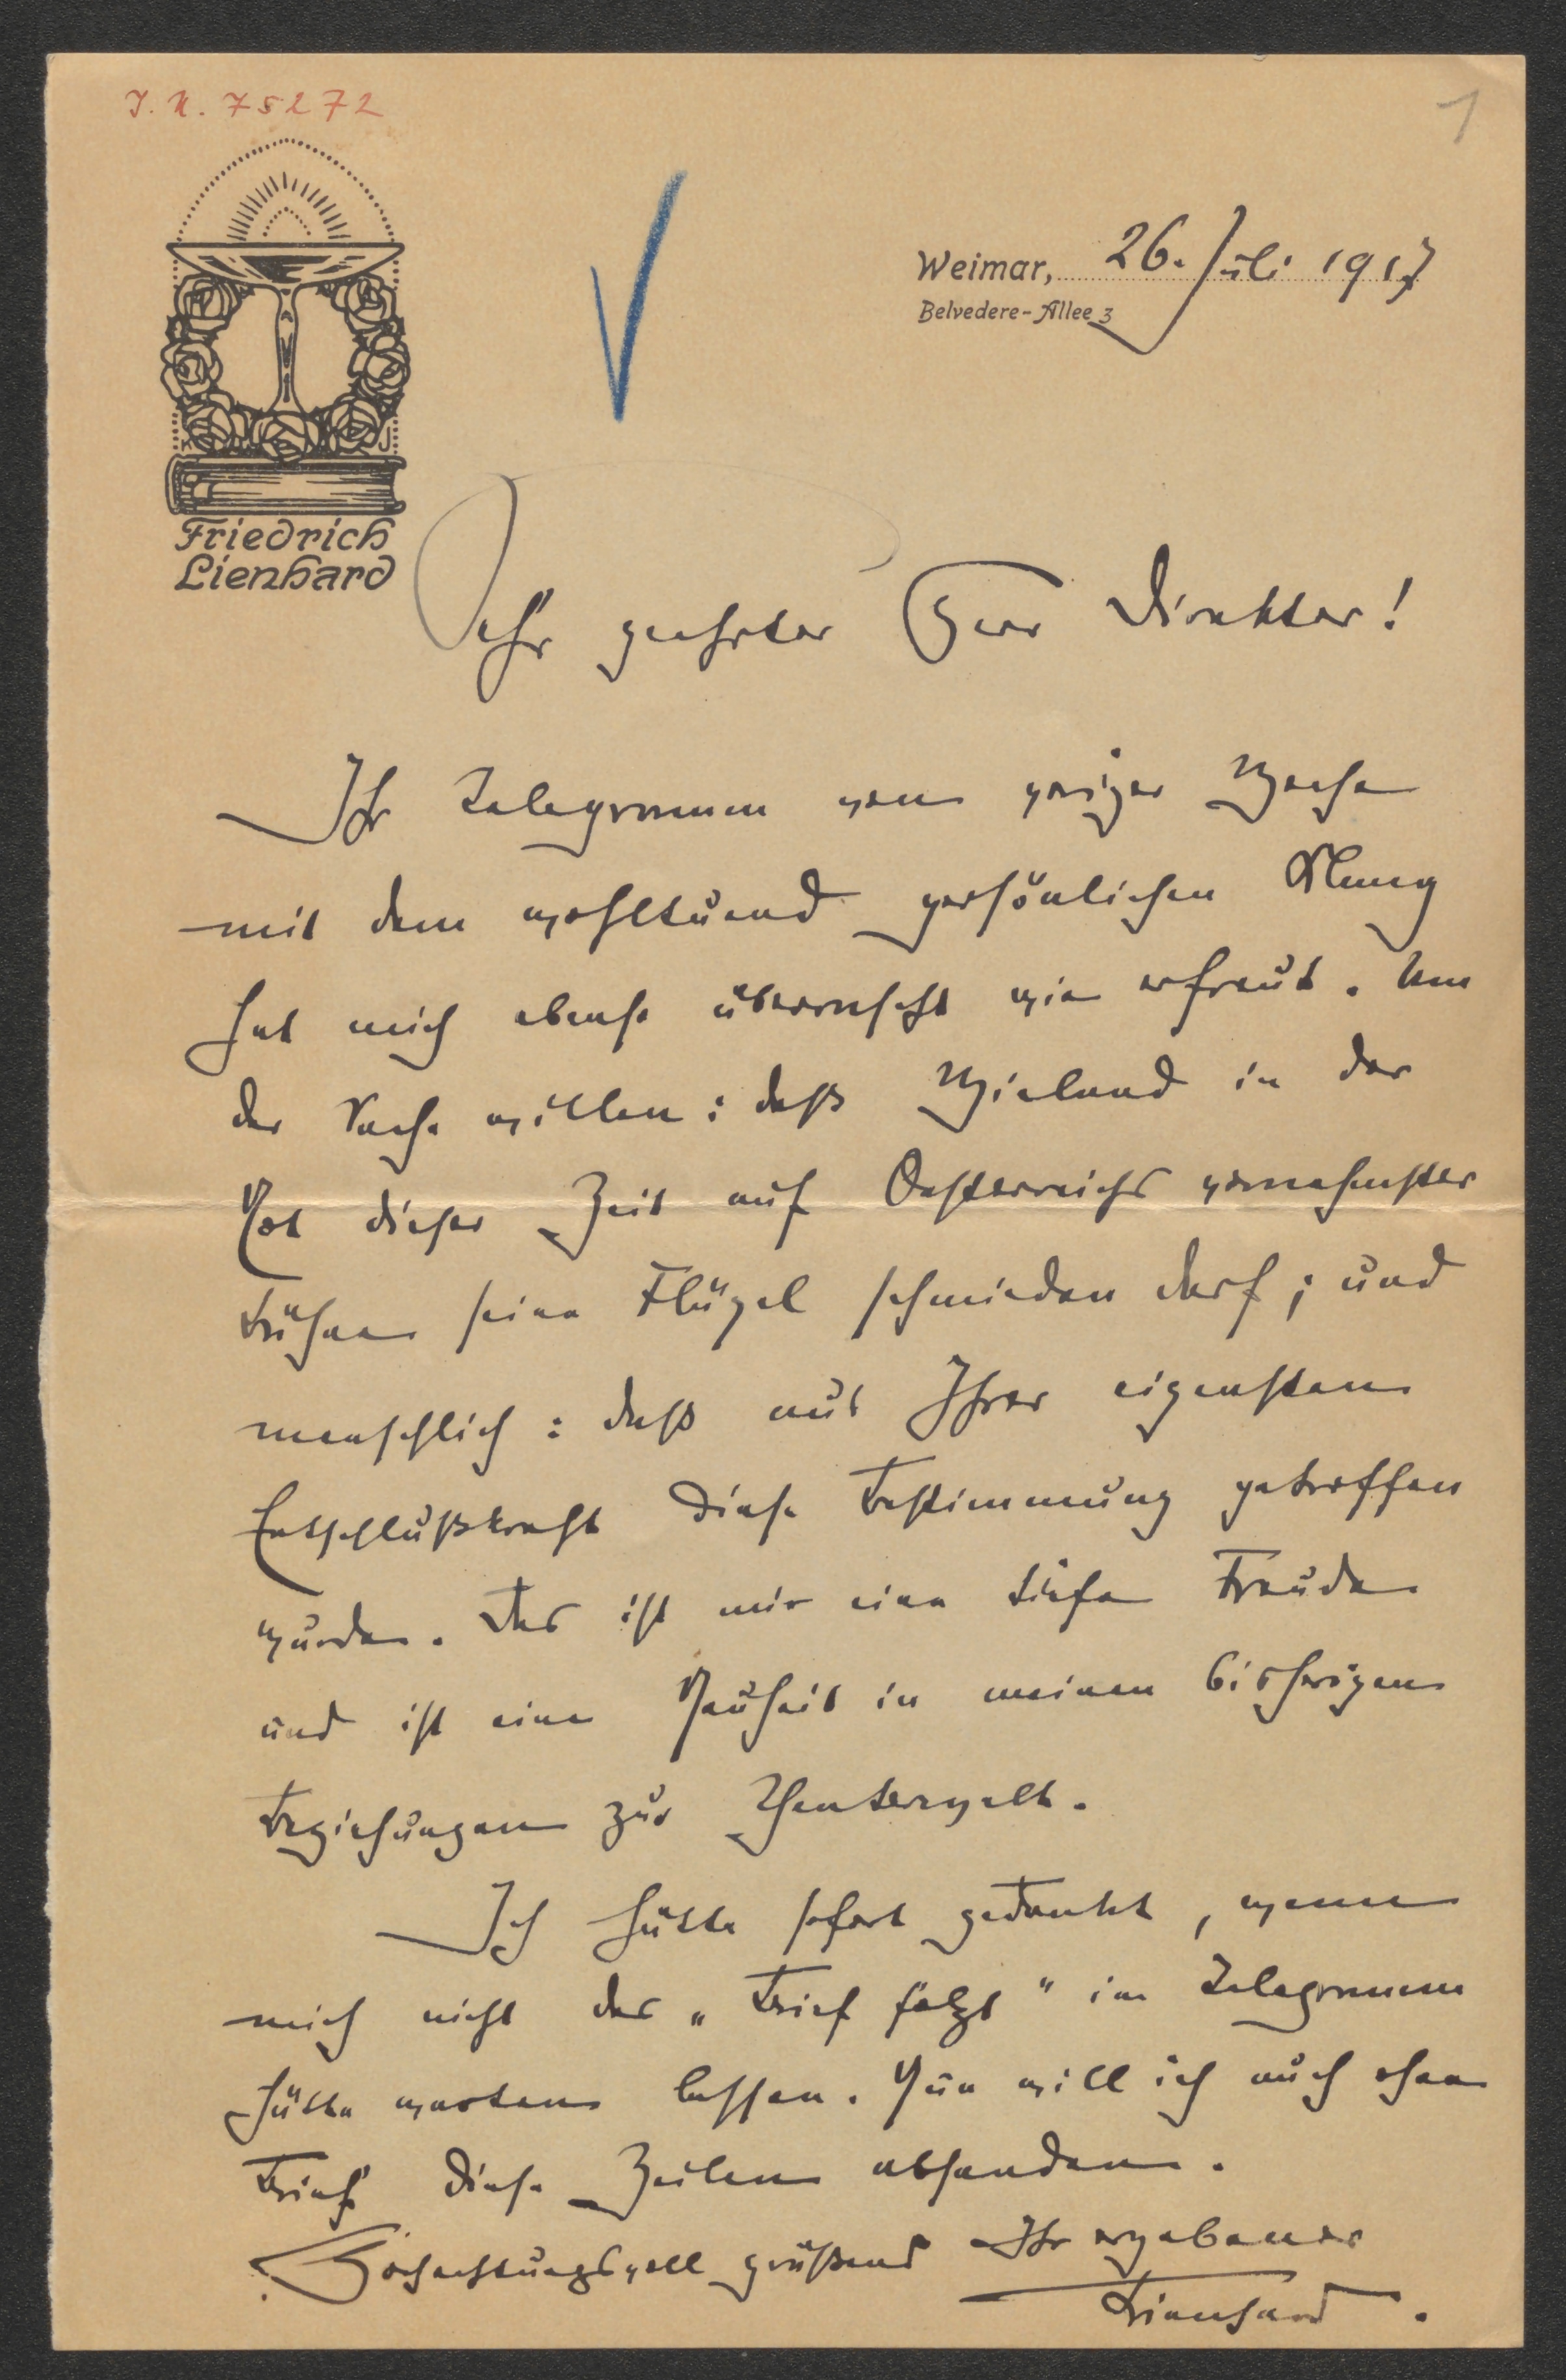 J. N. 75272
1
Friedrich
Lienhard
Weimar, 26. Juli 1917
Belvedere-Allee 3
Sehr geehrter Herr Direktor!
Ihr Telegramm von voriger Woche
mit dem wohltuend persönlichen Klang
hat mich ebenso überrascht wie erfreut. Um
der Sache willen: daß Wieland in der
Not dieser Zeit auf Oesterreichs vornehmster
Bühne seine Flügel schmieden darf; und
menschlich: daß aus Ihrer eigensten
Entschlußkraft diese Bestimmung getroffen
wurde. Das ist mir eine tiefe Freude
und ist eine Neuheit in meinen bisherigen
Beziehungen zur Theaterwelt.
Ich hätte sofort gedankt, wenn
mich nicht das „Brief folgt" im Telegramm
hätte warten lassen. Nun will ich auch ohne
Brief diese Zeilen absenden.
Hochachtungsvoll grüßend Ihr ergebener
Lienhard.